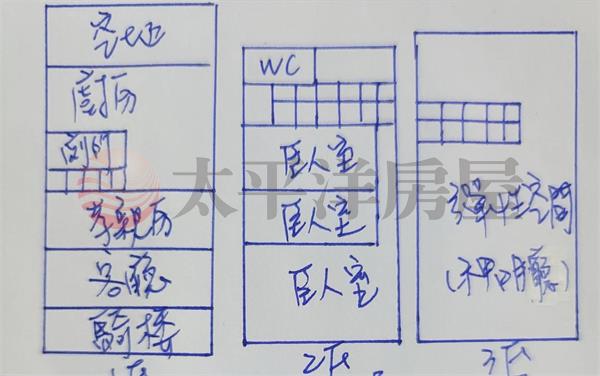 空地
廚房
廁所
孝親房
客廳
騎樓
1F
WC
臥室
臥室
臥室
2F
彈性空間
(神明廳)
3F
太平洋房屋